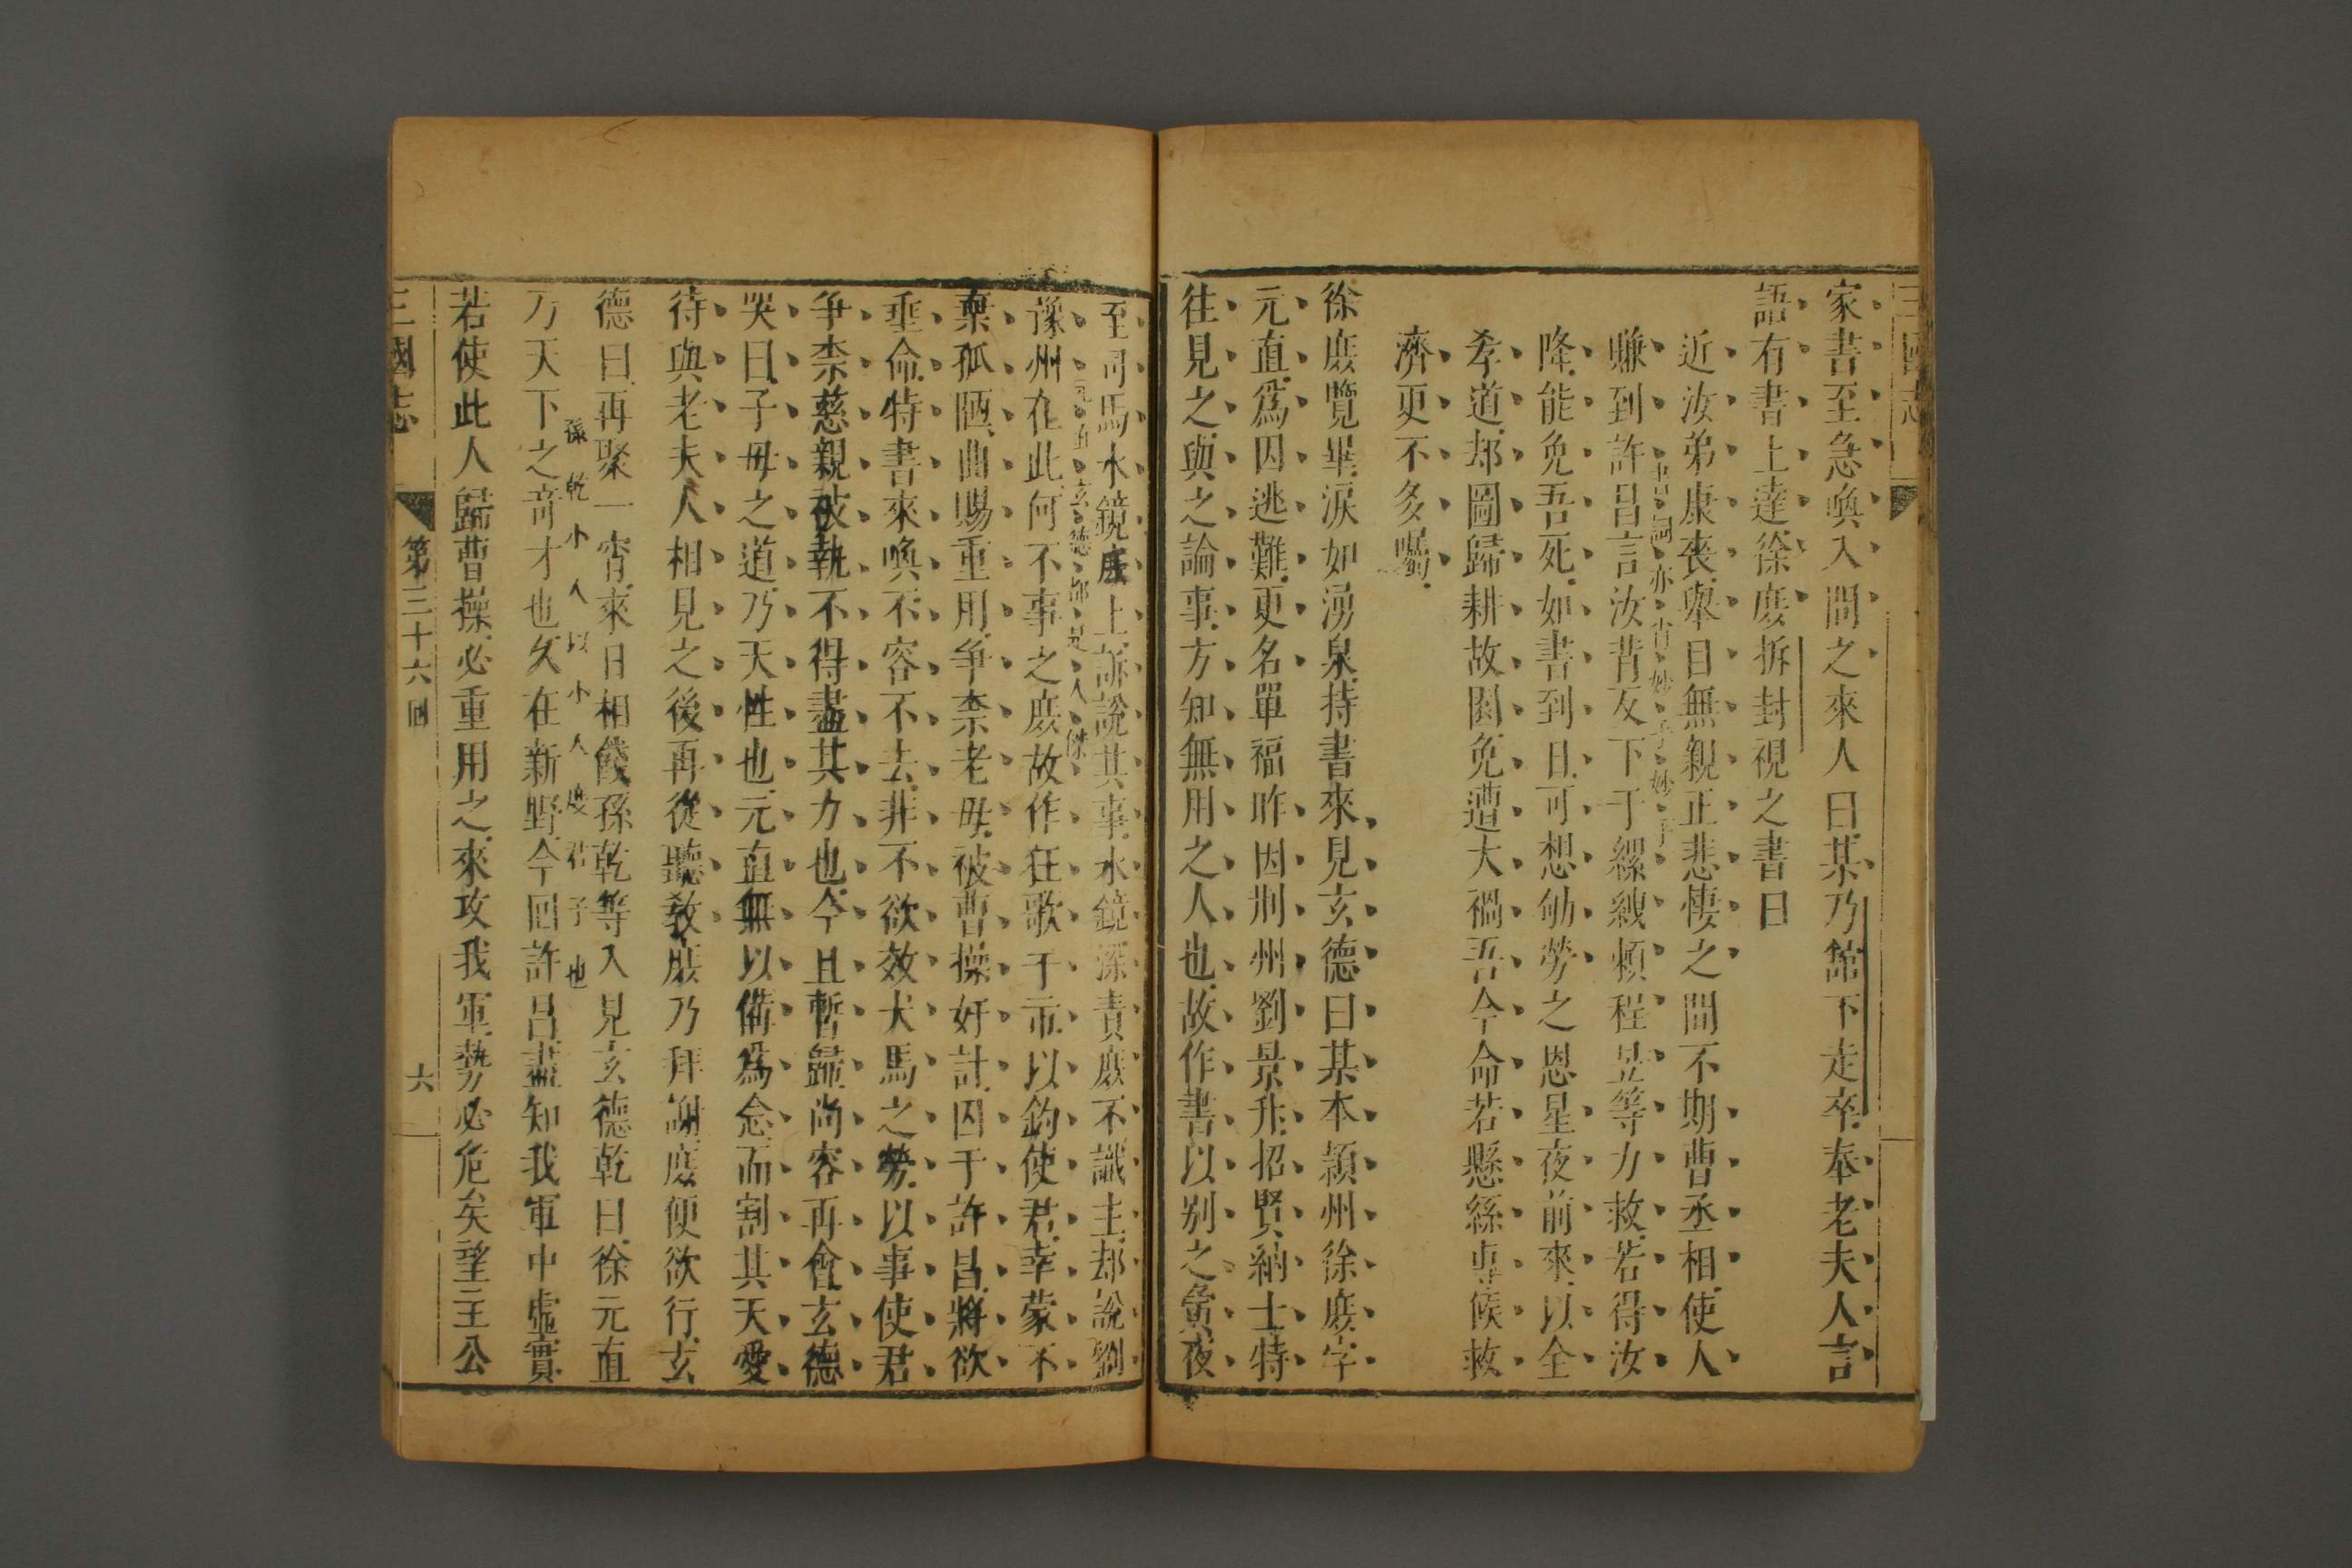 三國志
家書至急喚入問之來人曰某乃館下走卒奉老夫人言
語有書上達徐庶拆封視之書曰
近汝弟康喪舉目無親正悲悽之間不期曹丞相使人
書詞亦肖妙手妙手
賺到許昌言汝背反下于縲絏賴程昱等力救若得汝
降能免吾死如書到日可想劬勞之恩星夜前來以全
孝道却圖歸耕故園免遭大禍吾今命若懸絲專候救
濟更不多囑
徐庶覽畢淚如湧泉持書來見玄德曰某本潁州徐庶字
元直爲因逃難更名單福昨因荆州劉景升招賢納士特
往見之與之論事方知無用之人也故作書以别之黃夜
至司馬水鏡庄上訴說其事水鏡深責庶不識主却說劉
元直玄德都是人傑
豫州在此何不事之庶故作狂歌于市以釣使君幸蒙不
棄孤陋曲賜重用争柰老母被曹操奸計囚于許昌將欲
垂命特書來喚不容不去非不欲效犬馬之勞以事使君
争柰慈親被執不得盡其力也今且暫歸尚容再會玄德
哭曰子母之道乃天性也元直無以備爲念而割其天愛
待與老夫人相見之後再從聽敎庶乃拜謝庶便欲行玄
德曰再聚一宵來日相餞孫乾等入見玄德乾曰徐元直
孫乾小人以小人度君子也
乃天下之竒才也久在新野今回許昌盡知我軍中虛實
若使此人歸曹操必重用之來攻我軍勢必危矣望主公
三國志 第三十六回 六